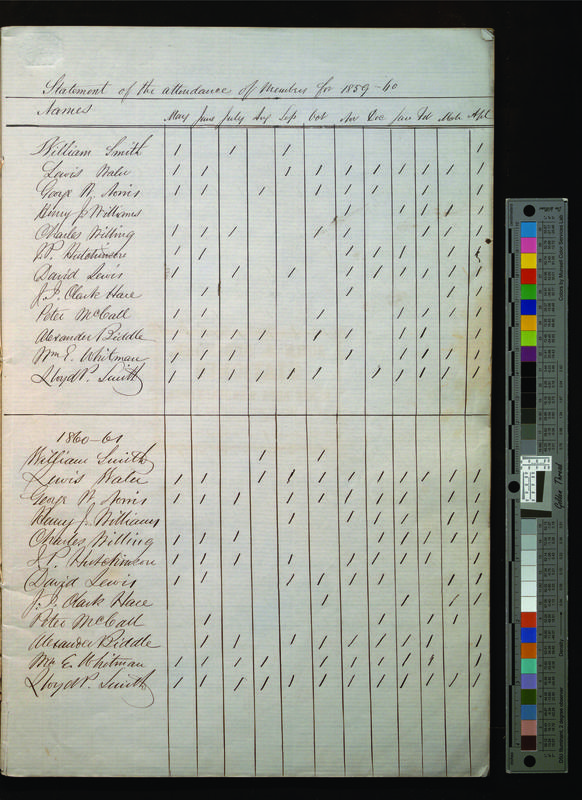 Statement of the attendance of Members for 1859-60
Names May June July Aug Sep Oct Nov Dec Jan Feb Mch Apl
William Smith / / / /
Lewis Waln / / / / / / / / / /
George W. Norris / / / / / /
Henry J. Williams / / / /
Charles Willing / / / / / / /
I. P. Hutchinson / / / / /
David Lewis / / / / / / / /
J. I. Clark Hare / / / /
Peter McCall / / / / / / /
Alexander Biddle / / / / / / / /
Wm E. Whitman / / / / / /
Lloyd P. Smith / / / / / / / / / / /
1860-61
William Smith / /
Lewis Waln / / / / / / / / / / /
George W. Norris / / / / / / / / / /
Henry J. Williams / / / / /
Charles Willing / / / / / / /
I. P. Hutchinson / / / / / / / / /
David Lewis / / / / / / / /
J. I. Clark Hare / / / /
Peter McCall / / / /
Alexander Biddle / / / / / / / / /
Wm E. Whitman / / / / / / / / /
Lloyd P. Smith / / / / / / / / / / / /